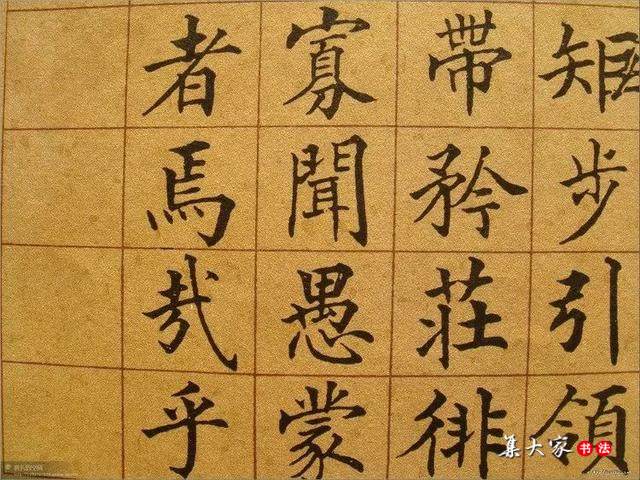 矩步引領
帶矜莊徘
寡聞愚蒙
者焉哉乎
集大家书法